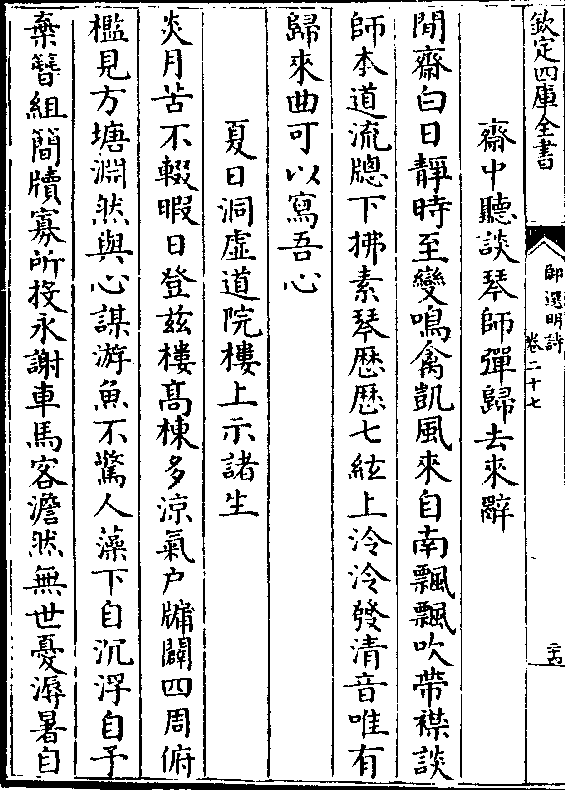 欽定四庫全書
御選明詩
卷二十七
齋中聽談琴師彈歸去來辭
閒齋白日靜時至變鳴禽凱風來自南飄飄吹帶襟談
師本道流牕下拂素琴歴歴七絃上泠泠發清音唯有
歸來曲可以寫吾心
夏日洞虛道院樓上示諸生
炎月苦不輟暇日登兹樓髙棟多涼氣户牖闢四周俯
檻見方塘淵然與心謀游魚不驚人藻下自沉浮自予
棄簪組簡牘寡所投永謝車馬客澹然無世憂溽暑自